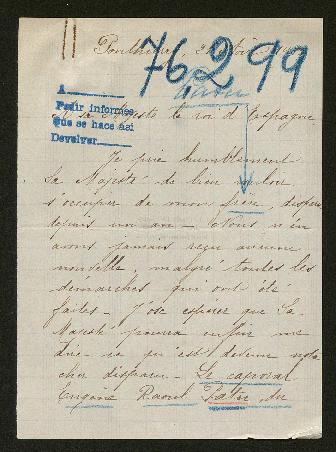 76299
A
Pedir informes
Que se hace así
Devolver
A sa Majesté le roi d'Espagne
Je prie humblement
Sa Majesté de bien vouloir
s'occuper de mon frère, disparu
depuis un an - Nous n'en
avons jamais reçu aucune
nouvelle, malgré toutes les
démarches qui ont été
faites - J'ose espérer que Sa
Majesté pourra enfin me
dire ce qu'est devenu notre
cher disparu - Le caporal
Eugène Raoul du